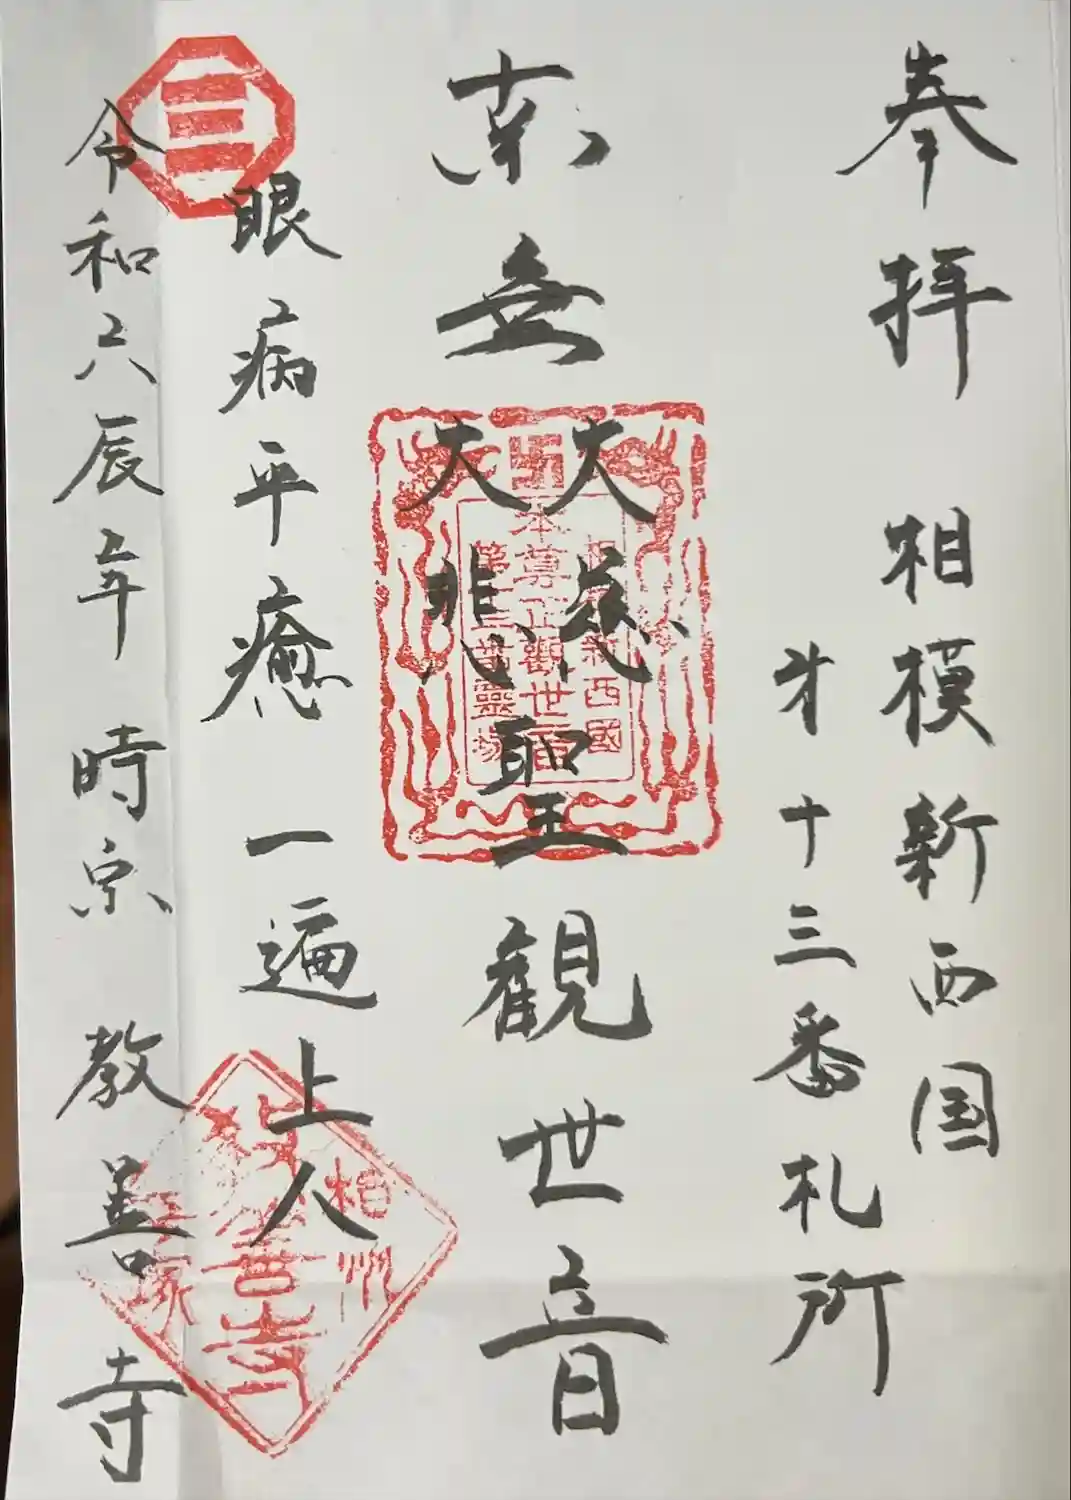 奉拝 相模新西国
才十三番札所
南無
大慈
大悲
聖観世音
眼病平癒 一遍上人
令和六辰年 時宗 教善寺
卍
新西國
本尊正觀世音
靈場
相州
善寺
塚